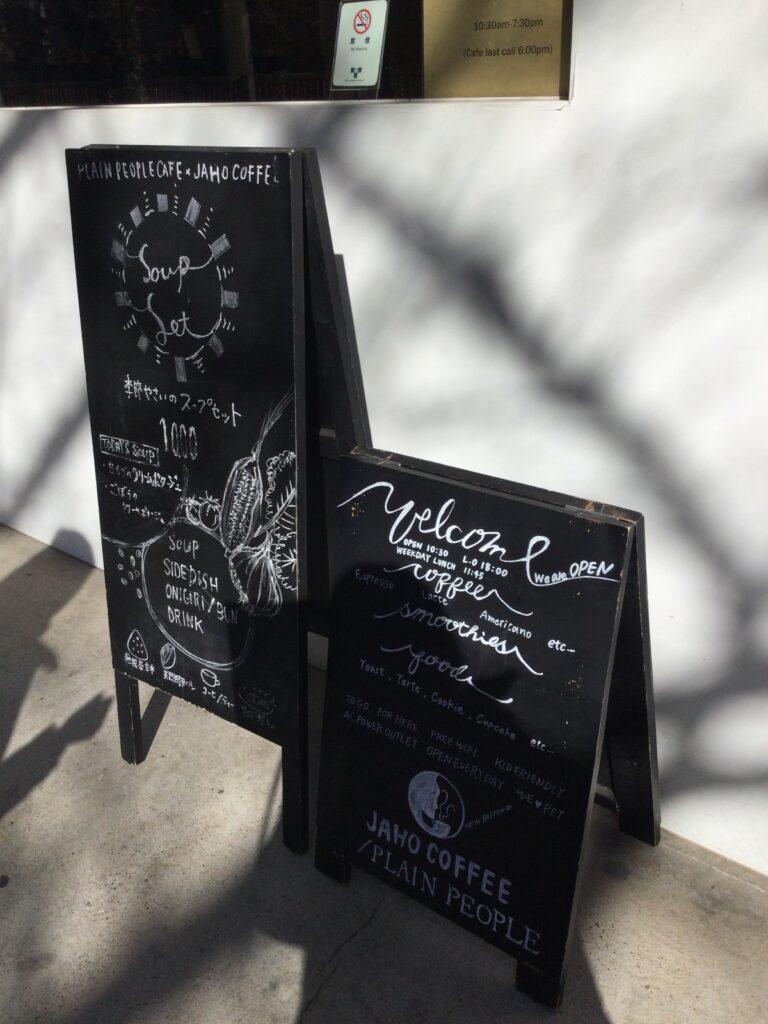 禁煙
NO SMOKING
10:30am-7:30pm
(Cafe last call 6:00pm)
PLAIN PEOPLE CAFE × JAHO COFFEE
Soup
Set
季節やさいのスープセット
1000
TODAY'S SOUP
ごぼうの
SOUP
SIDE DISH
ONIGIRI/BUN
DRINK
Welcome
OPEN 10:30 L.O 18:00
WEEKDAY LUNCH 11:45
We are OPEN
coffee
Espresso Latte Americano etc...
smoothies
food
Toast. Tarte. Cookie. Cupcake etc...
TO GO FOR HERE FREE WIFI KID FRIENDLY
AC POWER OUTLET OPEN EVERYDAY WE ♥ PET
FROM BOSTON
JAHO COFFEE
/PLAIN PEOPLE